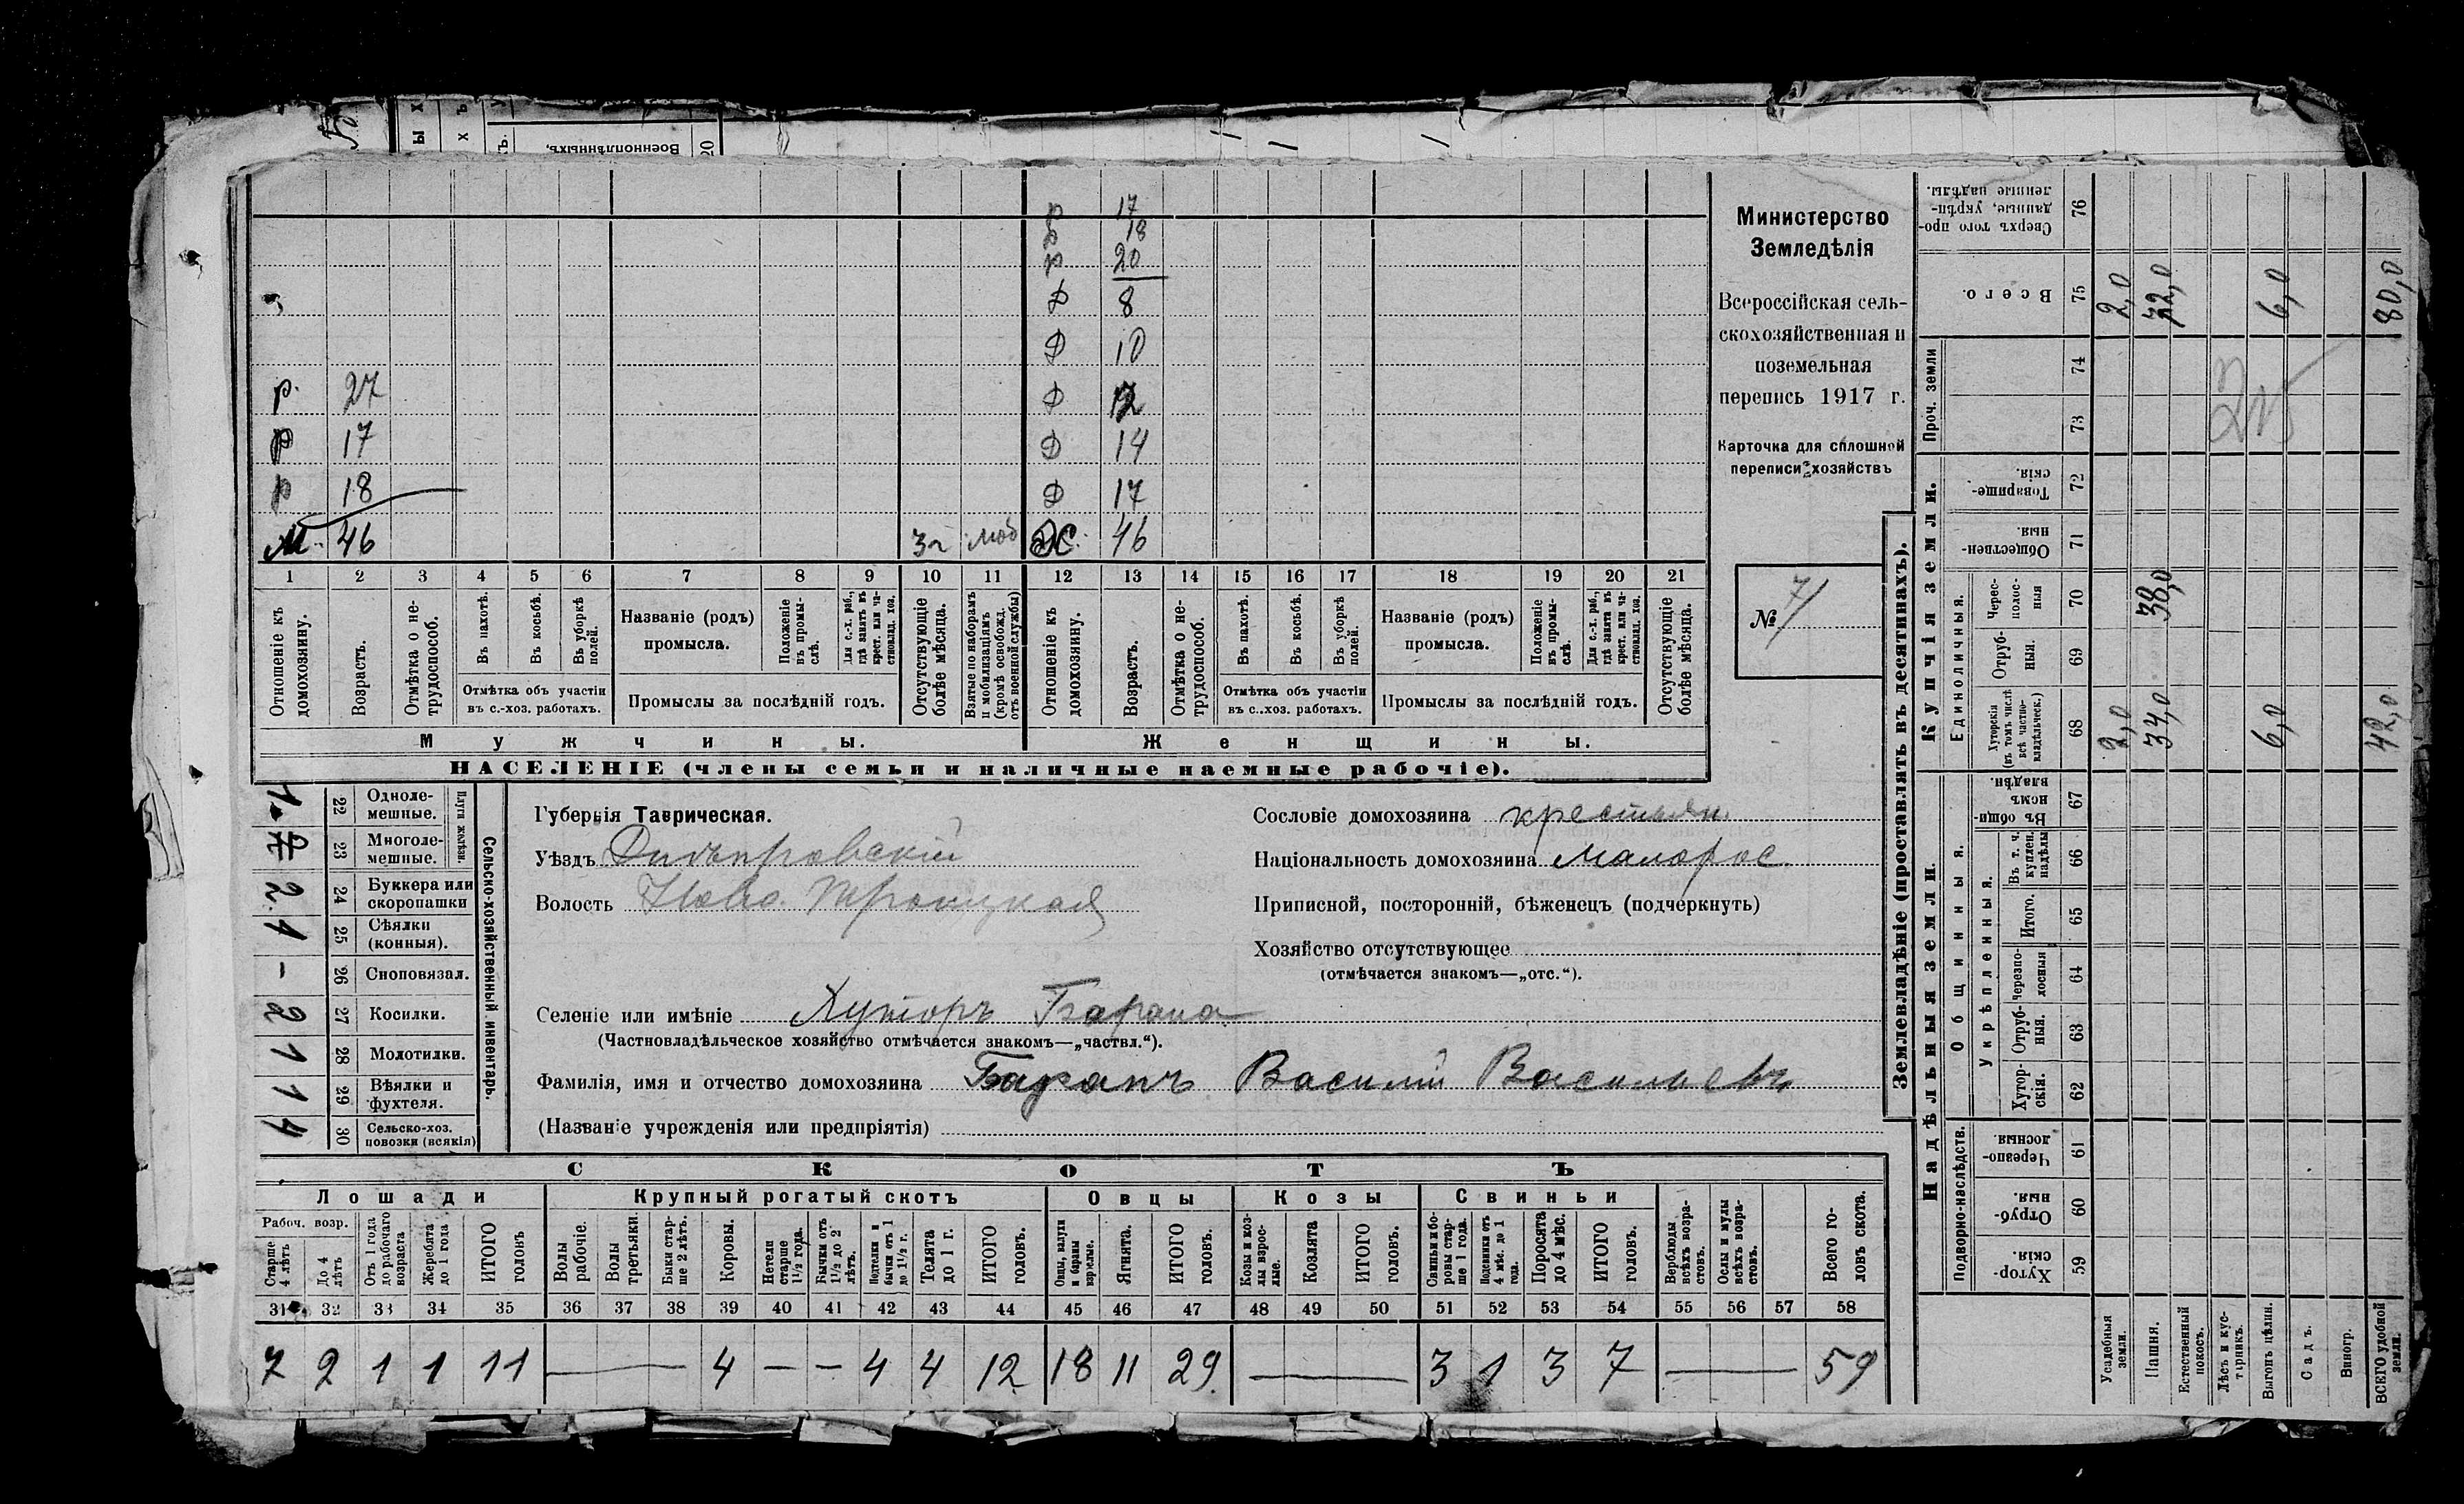 Военноплѣнныхъ,
20
р 17
р 18
р 20
Д 8
Д 10
р. 27 Д 12
р 17 Д 14
р 18 Д 17
М. 46 моб Ж. 46
1 2 3 4 5 6 7 8 9 10 11 12 13 14 15 16 17 18 19 20 21
Отношеніе къ домохозяину.
Возрастъ.
Отмѣтка о нетрудоспособ.
Въ пахотѣ.
Въ косьбѣ.
Въ уборкѣ полей.
Отмѣтка объ участіи
въ с.-хоз. работахъ.
Названіе (родъ)
промысла.
Положеніе въ промыслѣ.
Для с.-х. раб., гдѣ занятъ въ крест. или частновлад. хоз.
Промыслы за послѣдній годъ.
Отсутствующіе болѣе мѣсяца.
Взятые по наборамъ и мобилизаціямъ (кромѣ освобожд. отъ военной службы)
Отношеніе къ домохозяину.
Возрастъ.
Отмѣтка о нетрудоспособ.
Въ пахотѣ.
Въ косьбѣ.
Въ уборкѣ полей.
Отмѣтка объ участіи
въ с.-хоз. работахъ.
Названіе (родъ)
промысла.
Положеніе въ промыслѣ.
Для с.-х. раб., гдѣ занята въ крест. или частновлад. хоз.
Промыслы за послѣдній годъ.
Отсутствующіе болѣе мѣсяца.
Мужчины. Женщины.
НАСЕЛЕНІЕ (члены семьи и наличные наемные рабочіе).
Министерство
Земледѣлія
Всероссійская сель-
скохозяйственная и
поземельная
перепись 1917 г.
Карточка для сплошной
переписи хозяйствъ
№ 71
Сельско-хозяйственный инвентарь.
Плуги желѣзн.
1 22 Одноле-
мешные.
2 23 Многоле-
мешные.
2 24 Буккера или
скоропашки
1 25 Сѣялки
(конныя).
- 26 Сноповязал.
2 27 Косилки.
1 28 Молотилки.
1 29 Вѣялки и
фухтеля.
4 30 Сельско-хоз.
повозки (всякія)
Губернія Таврическая.
Уѣздъ Днѣпровскій
Волость Ново Троицкая
Сословіе домохозяина крестьян.
Національность домохозяина Малорос.
Приписной, посторонній, бѣженецъ (подчеркнуть)
Хозяйство отсутствующее
(отмѣчается знакомъ—„отс.“).
Селеніе или имѣніе Хуторъ Барана
(Частновладѣльческое хозяйство отмѣчается знакомъ—„частвл.“).
Фамилія, имя и отчество домохозяина Баранъ Василій Васильевъ
(Названіе учрежденія или предпріятія)
СКОТЪ
Лошади Крупный рогатый скотъ Овцы Козы Свиньи
Рабоч. возр.
Старше 4 лѣтъ
До 4 лѣтъ
Отъ 1 года до рабочаго возраста
Жеребята до 1 года
ИТОГО головъ
Волы рабочіе.
Волы третьяки.
Быки старше 2 лѣтъ.
Коровы.
Нетели старше 1½ года.
Бычки отъ 1½ до 2 лѣтъ.
Подтелки и бычки отъ 1 до 1½ г.
Телята до 1 г.
ИТОГО головъ.
Овцы, валухи и бараны взрослые.
Ягнята.
ИТОГО головъ.
Козы и козлы взрослые.
Козлята
ИТОГО головъ.
Свиньи и боровы старше 1 года.
Подсвинки отъ 4 мѣс. до 1 года.
Поросята до 4 мѣс.
ИТОГО головъ.
Верблюды всѣхъ возрастовъ.
Ослы и мулы всѣхъ возрастовъ.
Всего головъ скота.
31 32 33 34 35 36 37 38 39 40 41 42 43 44 45 46 47 48 49 50 51 52 53 54 55 56 57 58
7 2 1 1 11 — 4 – – 4 4 12 18 11 29 — 3 1 3 7 — 59
Землевладѣніе (проставлять въ десятинахъ).
Купчія земли.
Надѣльныя земли.
Сверхъ того проданные, укрѣпленные надѣлы. 76
Всего. 75 2,0 72,0 6,0 80,0
Проч. земли
74
73
25
Товарищескія. 72
Общественныя. 71
Единоличныя.
Черес-
полос-
ныя 70 38,0
Отруб-
ныя. 69
Хуторскія
(въ томъ числѣ
всѣ частно-
владѣльческ.) 68 2,0 34,0 6,0 42,0
Общинныя.
Въ общинномъ владѣн. 67
Въ т. ч. куплен. надѣлы 66
Укрѣпленныя.
Итого. 65
Черезполосныя 64
Отрубныя. 63
Хуторскія. 62
Подворно-наслѣдств.
Черезполосныя. 61
Отрубныя. 60
Хуторскія. 59
Усадебныя земли.
Пашня.
Естественный покосъ.
Лѣсъ и кустарникъ.
Выгонъ цѣлин.
Садъ.
Виногр.
ВСЕГО удобной земли.